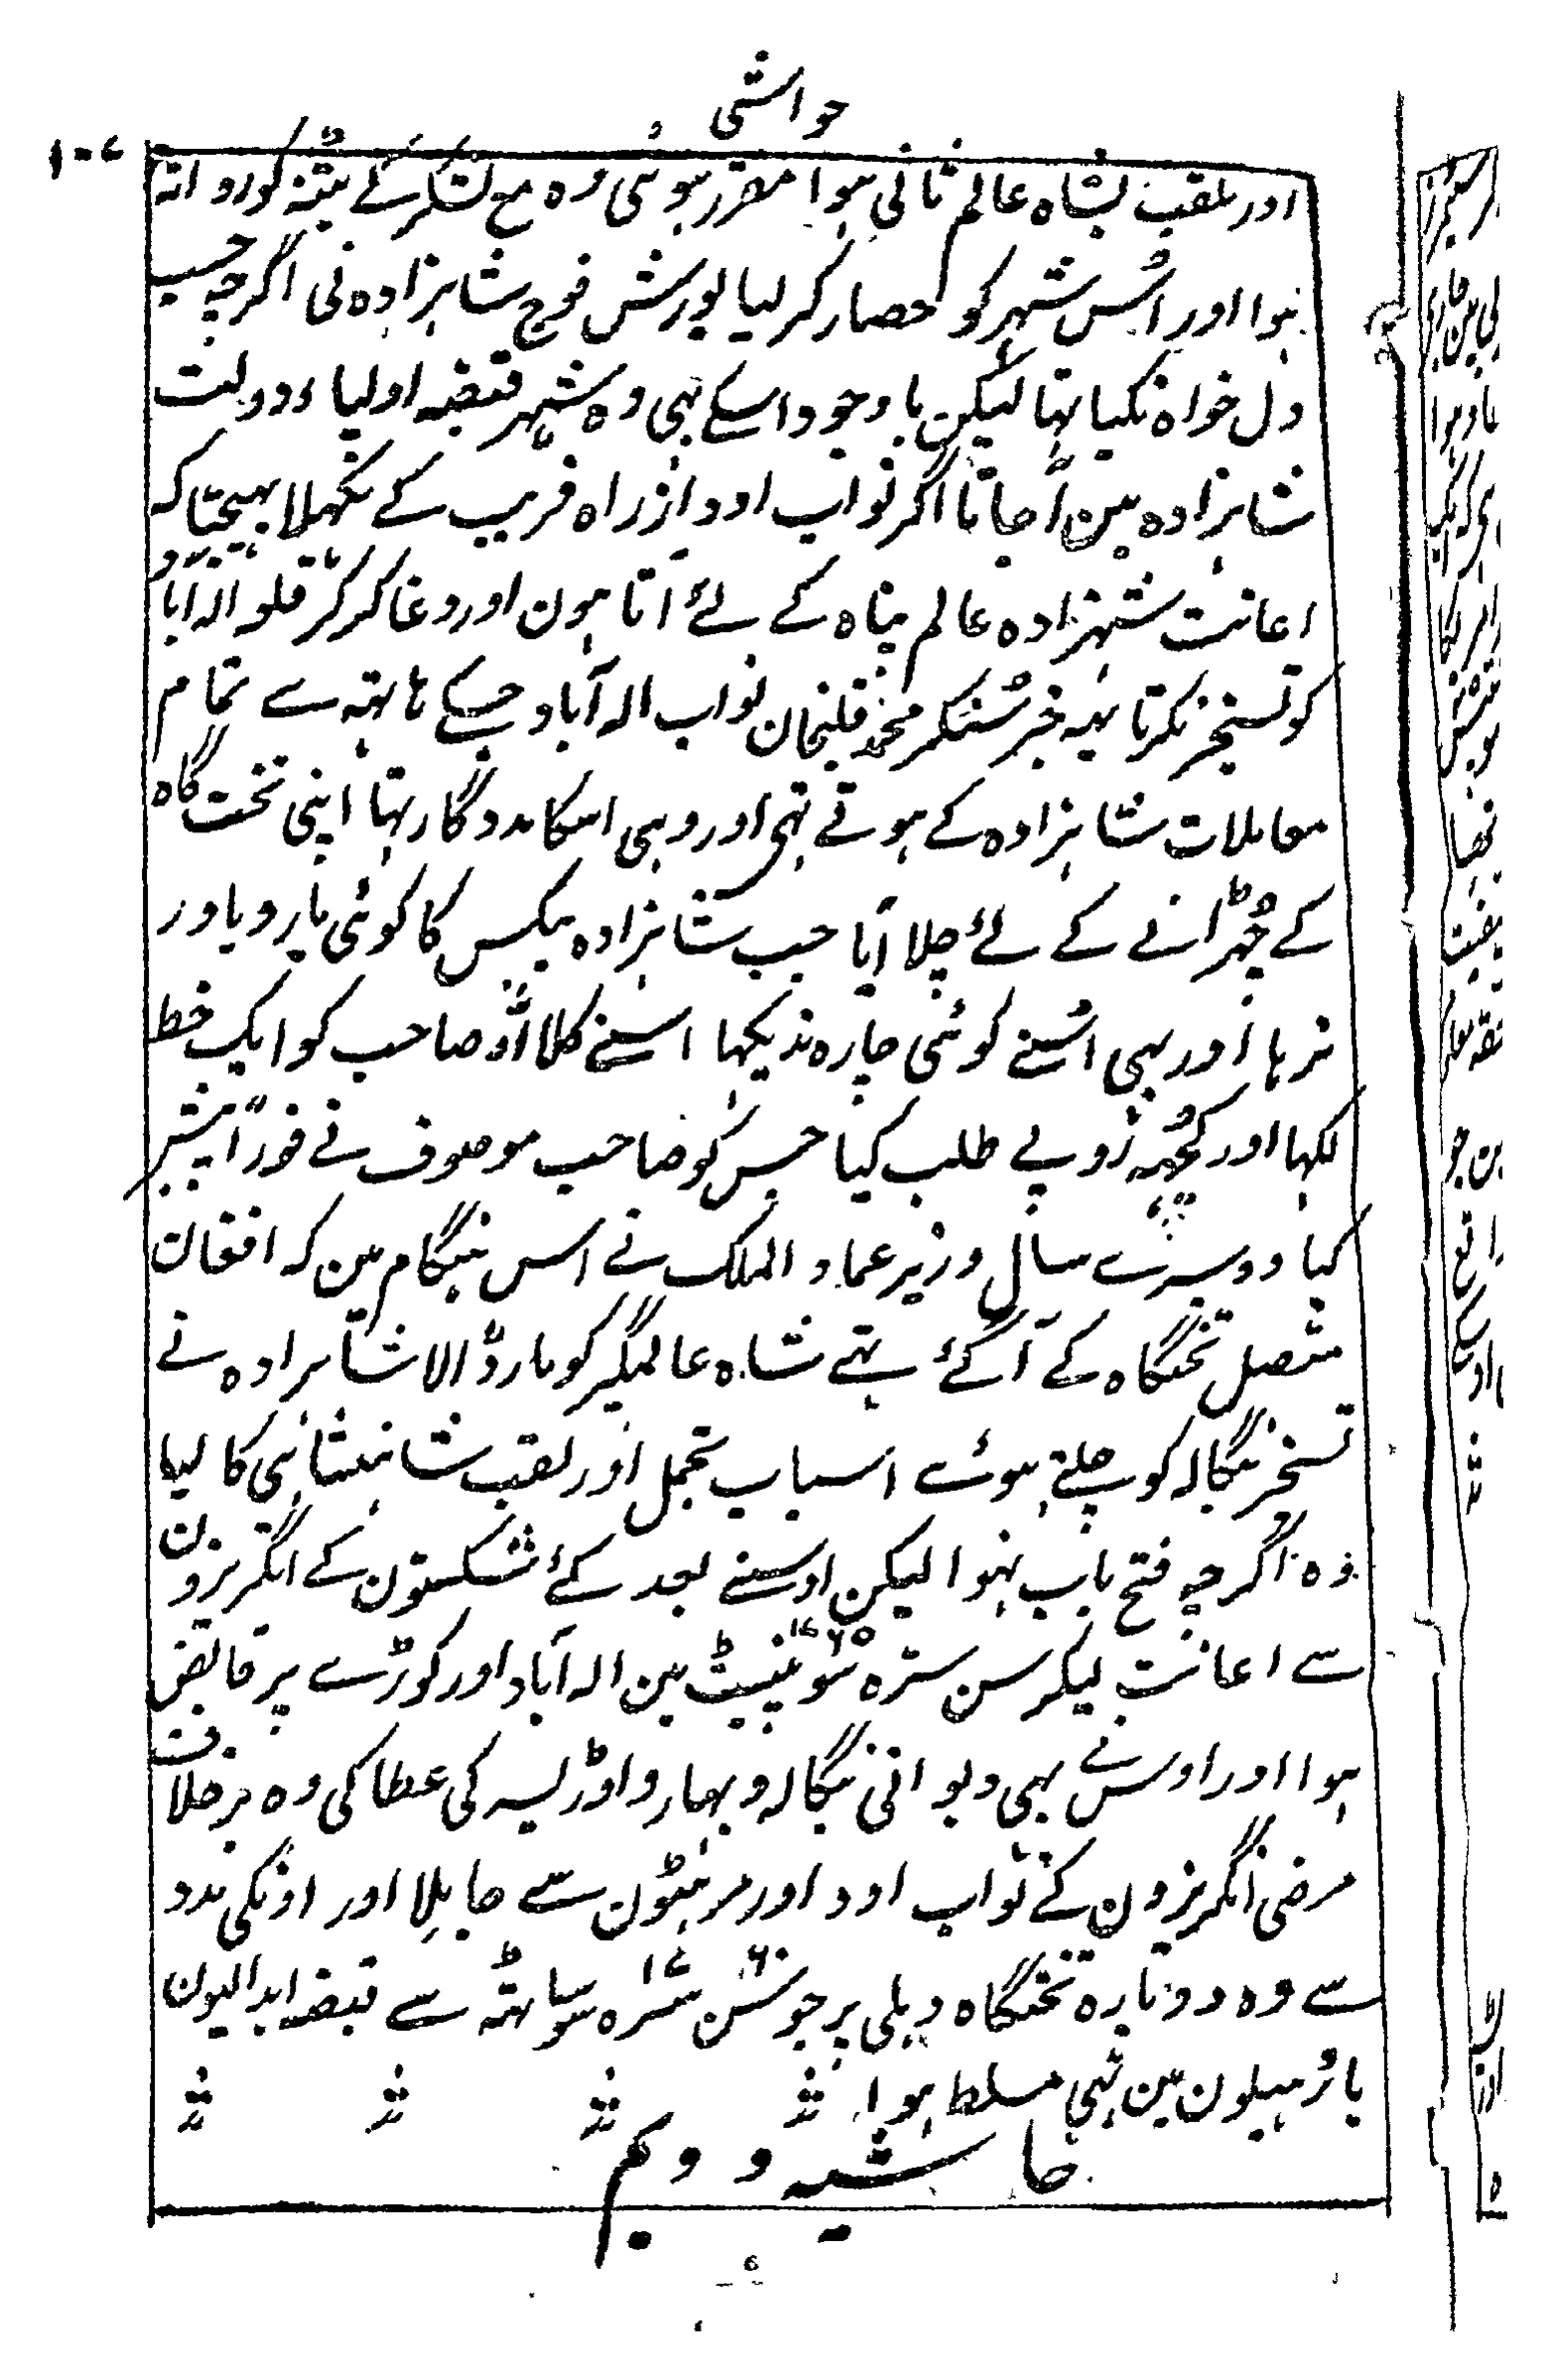 حواشی
۱۰۷
اور ملقب بشاہ عالم ثانی ہوا مقرر ہوئی وہ مع لشکر کے پٹنہ کو روانہ
ہوا اور اُس شہر کو حصار کر لیا یورش فوج شاہزادہ نی اگرچہ حسب
دل خواہ نکیا تہا لیکن باوجود اسکے بہی وہ شہر قبضہ اولیاء دولت
شاہزادہ مین آجاتا اگر نواب اودہ از راہ فریب کے نکہلا بہیجتا کہ
اعانت شہزادہ عالم پناہ کے لئے آتا ہون اور دغا کر کر قلعہ الہ آباد
کو تسخیر نکرتا یہہ خبر سُنکر محمد قلیخان نواب الہ آباد جسکے ہاتہہ سے تمام
معاملات شاہزادہ کے ہوتے تہی اور وہی اسکا مددگار تہا اپنی تخت گاہ
کے چُہڑانے کے لئے چلا آیا جب شاہزادہ بیکس کا کوئی یار و یاور
نرہا اور بہی اُسنے کوئی چارہ ندیکہا اُسنے کلااؤ صاحب کو ایک خط
لکہا اور کچُہہ روپے طلب کیا جس کو صاحب موصوف نے فوراً پیش
کیا دوسرے سال وزیر عماد الملک نے اس ہنگام مین کہ افغان
متصل تختگاہ کے آ گئے تہے شاہ عالمگیر کو مار ڈالا شاہزادہ نے
تسخیر بنگالہ کو چلتے ہوئے اسباب تجمل اور لقب شاہنشاہی کا لیا
وہ اگرچہ فتح یاب نہوا لیکن اوسنے بعد کئے شکستون کے انگریزون
سے اعانت لیکر سن سترہ سَو پینسٹھ ۱۷۶۵ مین الہ آباد اور کوڑے پر قابض
ہوا اور اوس نے بہی دیوانی بنگالہ و بہار و اوڑیسہ کی عطا کی وہ برخلاف
مرضی انگریزون کے نواب اودہ اور مرہٹون سے جا مِلا اور اونکی مدد
سے وہ دوبارہ تختگاہ دہلی پر جو سن سترہ سو ساٹہہ ۱۷۶۰ سے قبضہ ابدالیون
یا رُہیلون مین تہی مسلط ہوا
حاشیہ دویم